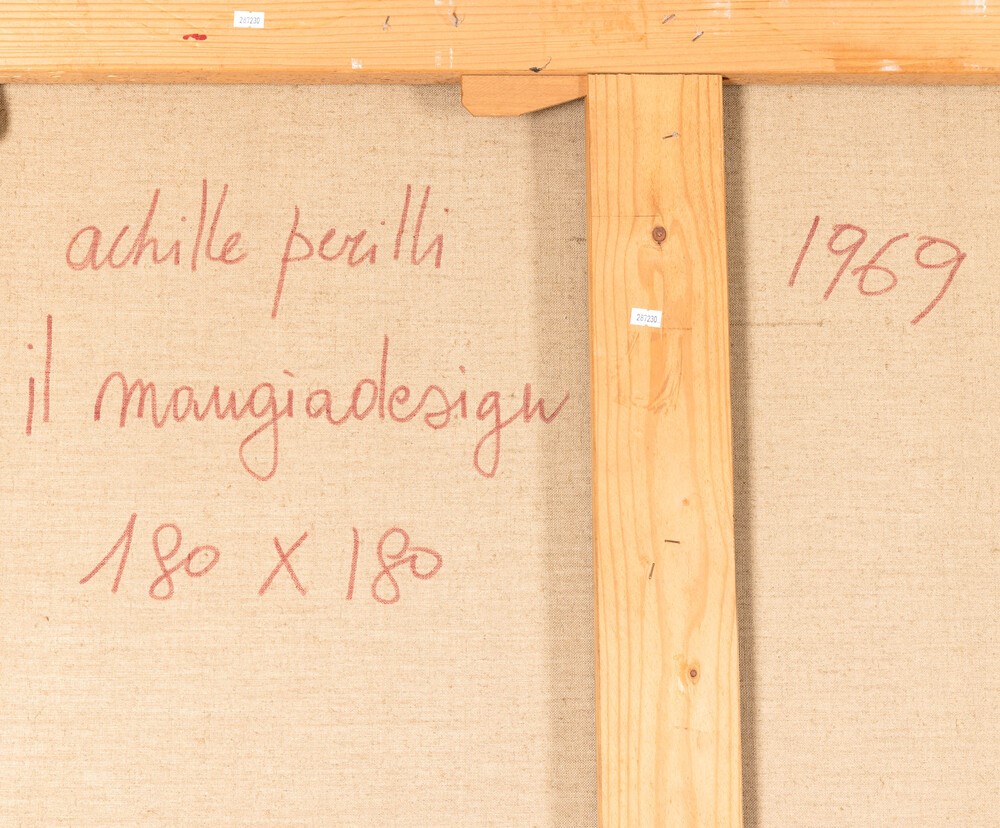 287230
achille perilli
1969
287230
il mangiadesign
180 X 180